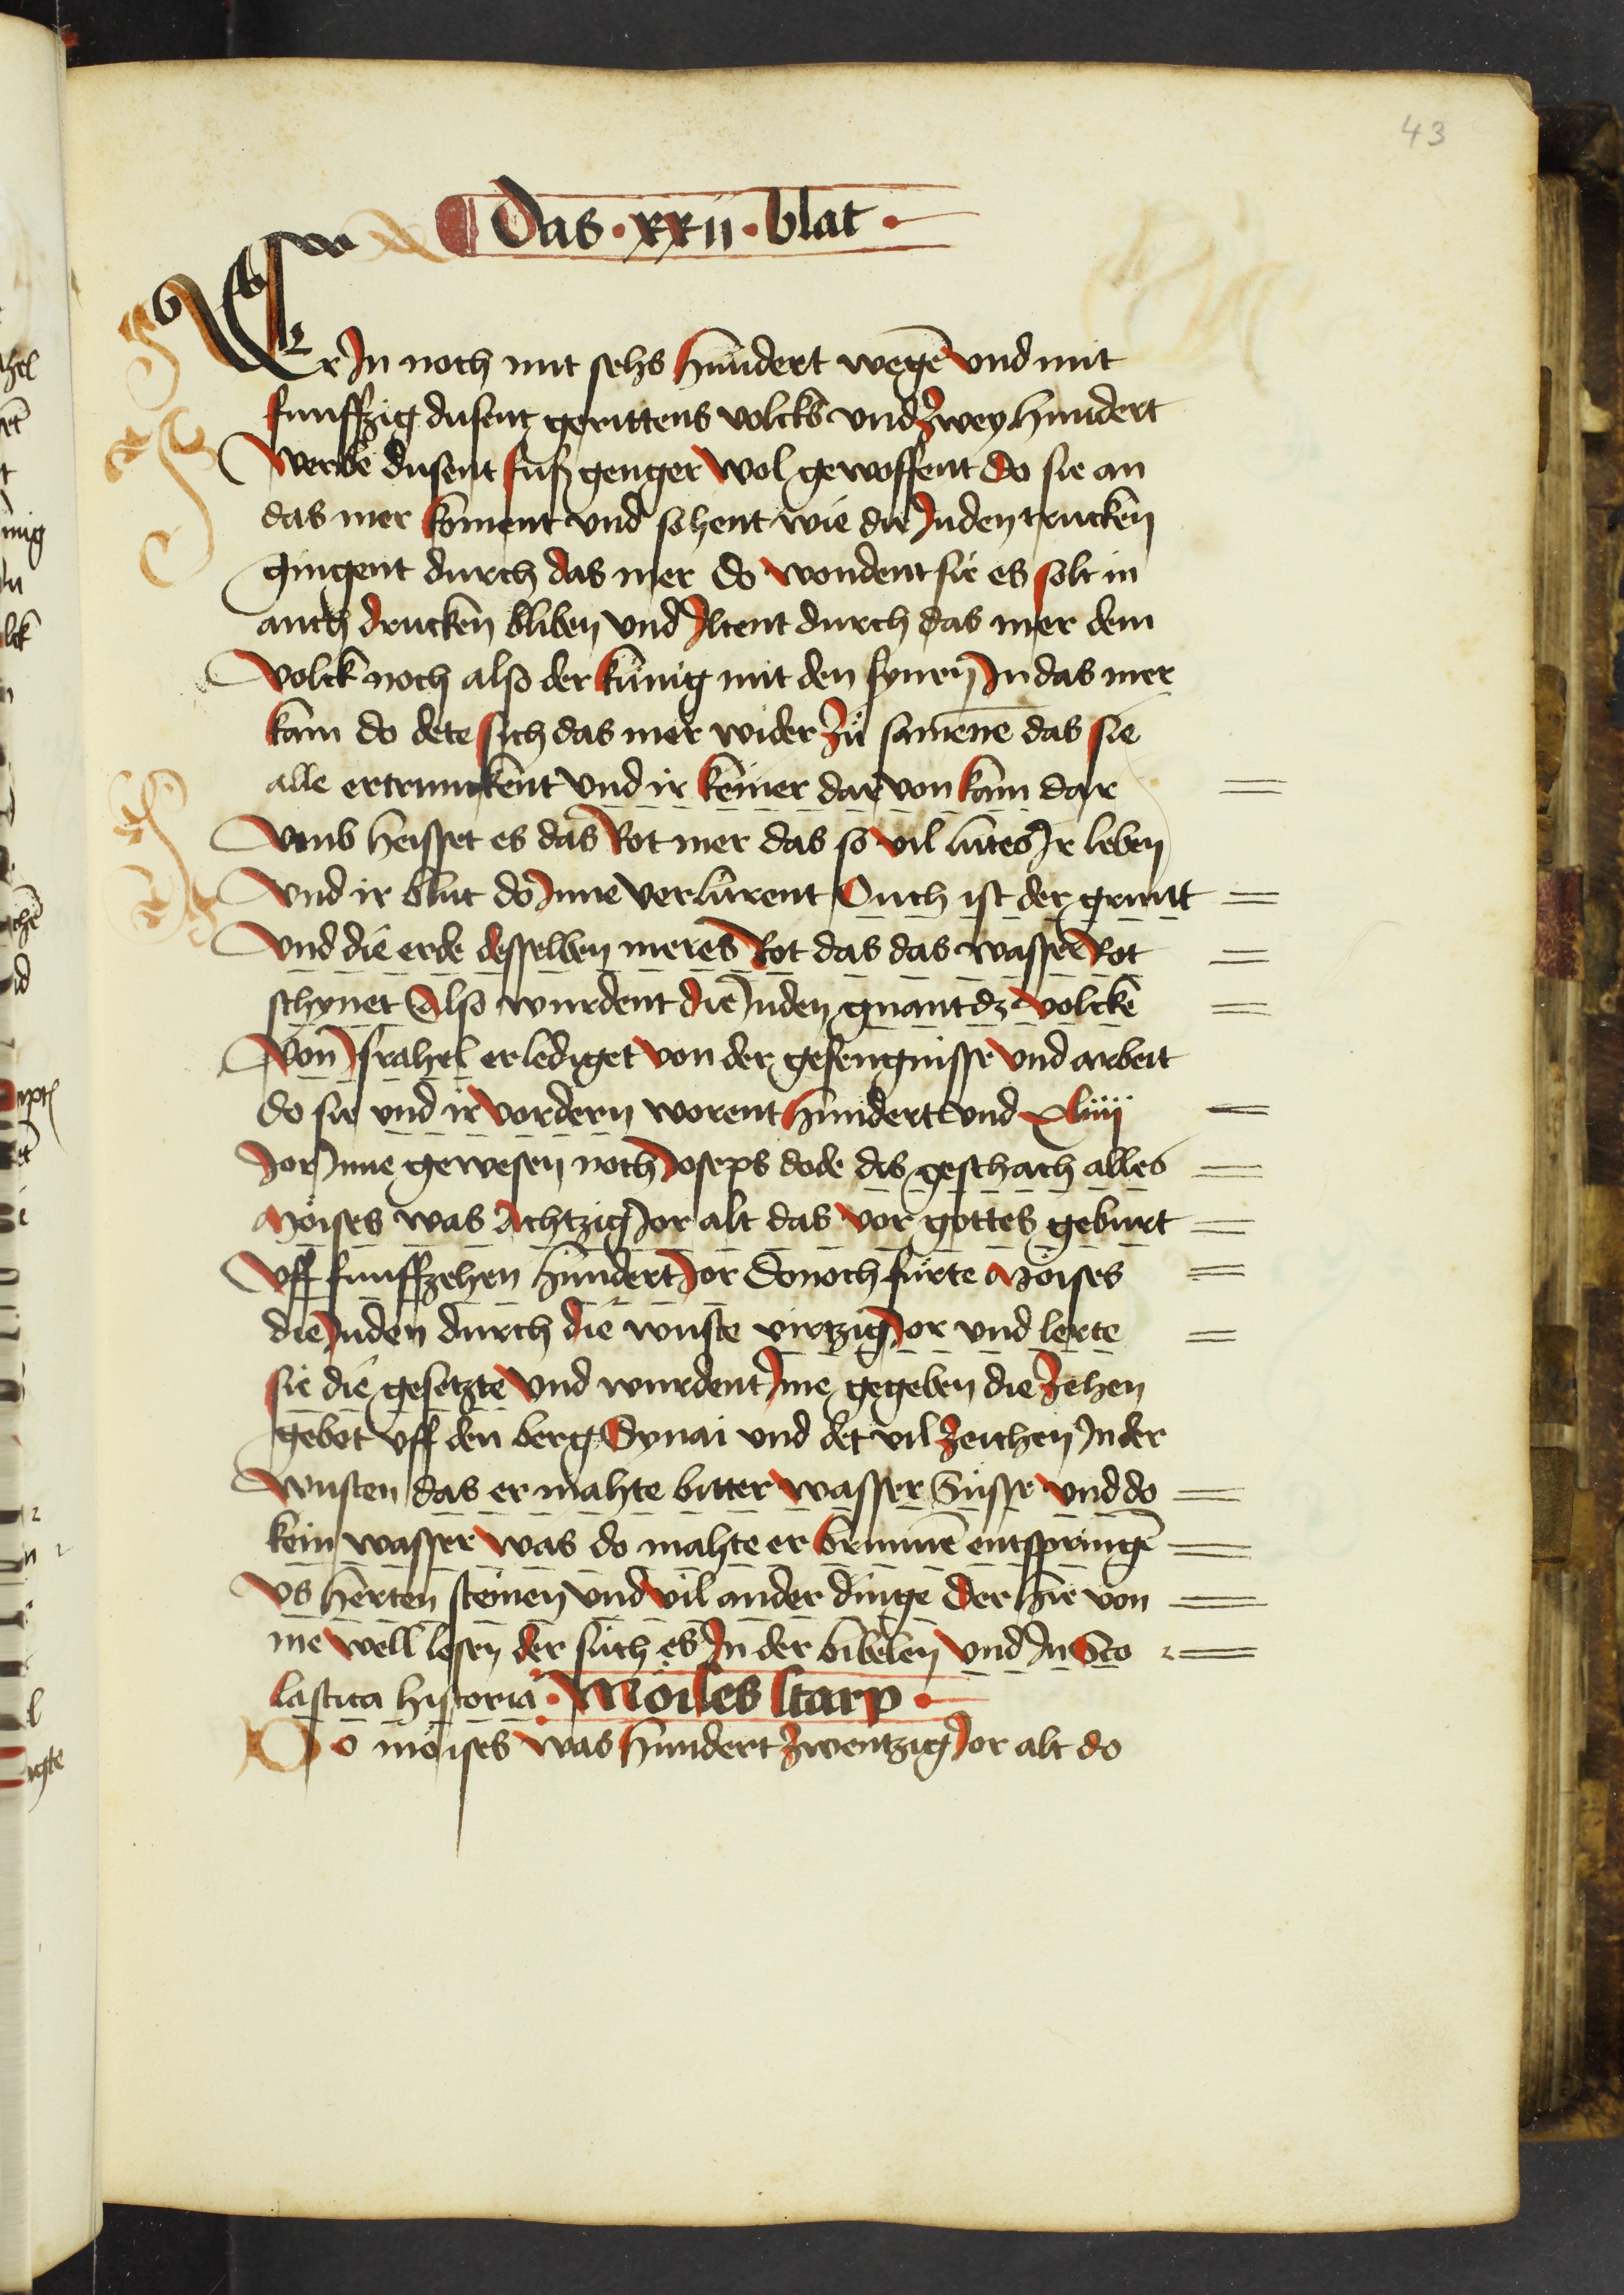 43
Das · xxii · blat ·
Er In noch mit sehs hundert wegē vnd mit
funffzig dusent gerittens volcks vnd Zwey hundert
werbē dusent fuß genger wol gewoffent do sie an
das mer koment vnd sohent wie die Juden trucken
gingent durch das mer do wondent sie es solt in
auch drucken bliben vnd Iltent durch das mer dem
volck noch also der künig mit den synen In das mer
kam do dete sich das mer wider zů samēne das sie
alle ertrunckent vnd ir keiner dar von kam dar
vmb heisset es das Rot mer das so vil lutes Ir leben
vnd ir blut do Inne verlurent Ouch ist der gruntt
vnd die erde desselben meres Rot das das wasser Rot
schynet Also wurdent die Juden gnant dz volcke
von Israhel erlediget von der gefengnisse vnd arbeit
do sie vnd ir vordern worent hundert vnd xliiii
Jor Inne gewesen noch Joseps dode dis geschach alles
Moises was Achtzig Jor alt das vor gottes geburt
vff funffzehen hundert Jor Donoch fürte Möises
die Juden durch die wuste virtzig Jor vnd lerte
sie die gesetzte vnd wurdent Ime gegeben die Zehen
gebot vff den berg Synai vnd det vil Zeichen In der
wusten das er mahte bitter wasser Süsse vnd do
kein wasser was do mahte er brunnē entspringē
vs herten steinen vnd vil ander dinge Der hie von
me well lesen der such es In der bibelen vnd In Sco
lastica historia · Möises starp ·
Do möises was hundert Zwentzig Jor alt do